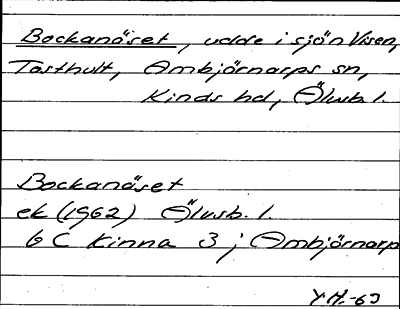 Bockanäset, udde i sjön Visen,
Tosthult, Ambjörnarps sn,
Kinds hd, Älvsb. l.
Bockanäset
ek (1962) Älvsb. l.
6 C Kinna 3; Ambjörnarp
Y.H.-63